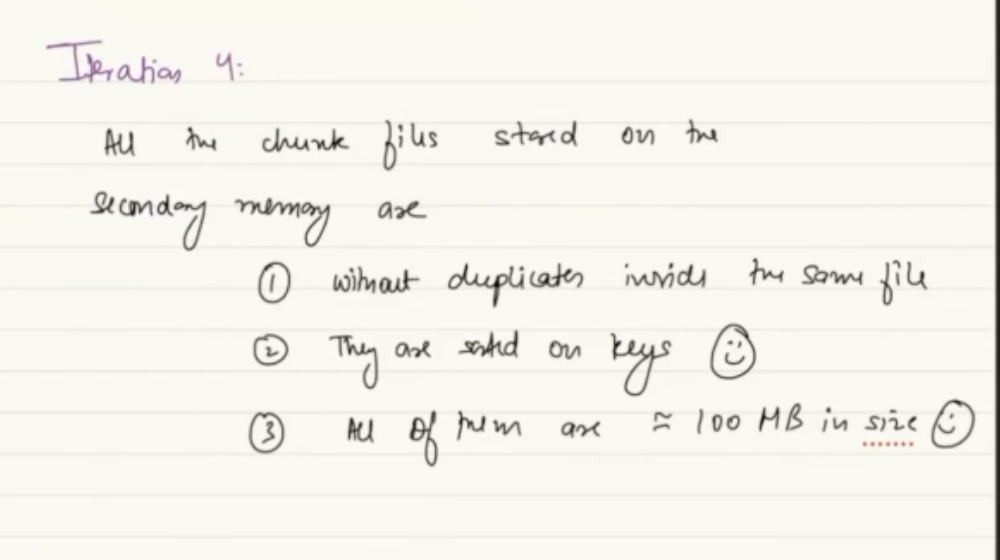 Iteration 4:
All the chunk files stored on the
secondary memory are
① without duplicates inside the same file
② They are sorted on keys
③ All of them are ≈ 100 MB in size